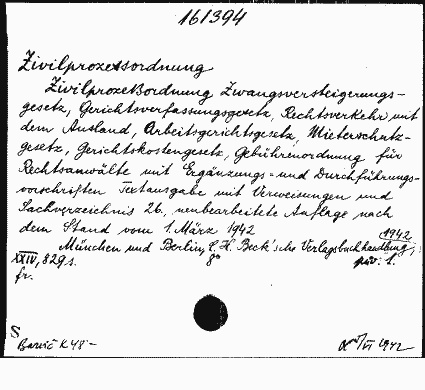 161394
Zivilprozessordnung
Zivilprozeßordnung Zwangsversteigerungs-
gesetz, Gerichtsverfassungsgesetz, Rechtsverkehr mit
dem Ausland, Arbeitsgerichtsgesetz, Mieterschutz-
gesetz, Gerichtskostengesetz, Gebührenordnung für
Rechtsanwälte mit Ergänzungs- und Durchführungs-
vorschriften Textausgabe mit Verweisungen und
Sachverzeichnis 26., neubearbeitete Auflage nach
dem Stand vom 1. März 1942
München und Berlin, C. H. Beck'sche Verlagsbuchhandlung, 1942
XXIV, 829 s. 8° priv. 1.
fr.
S
K 48-
VI 1942